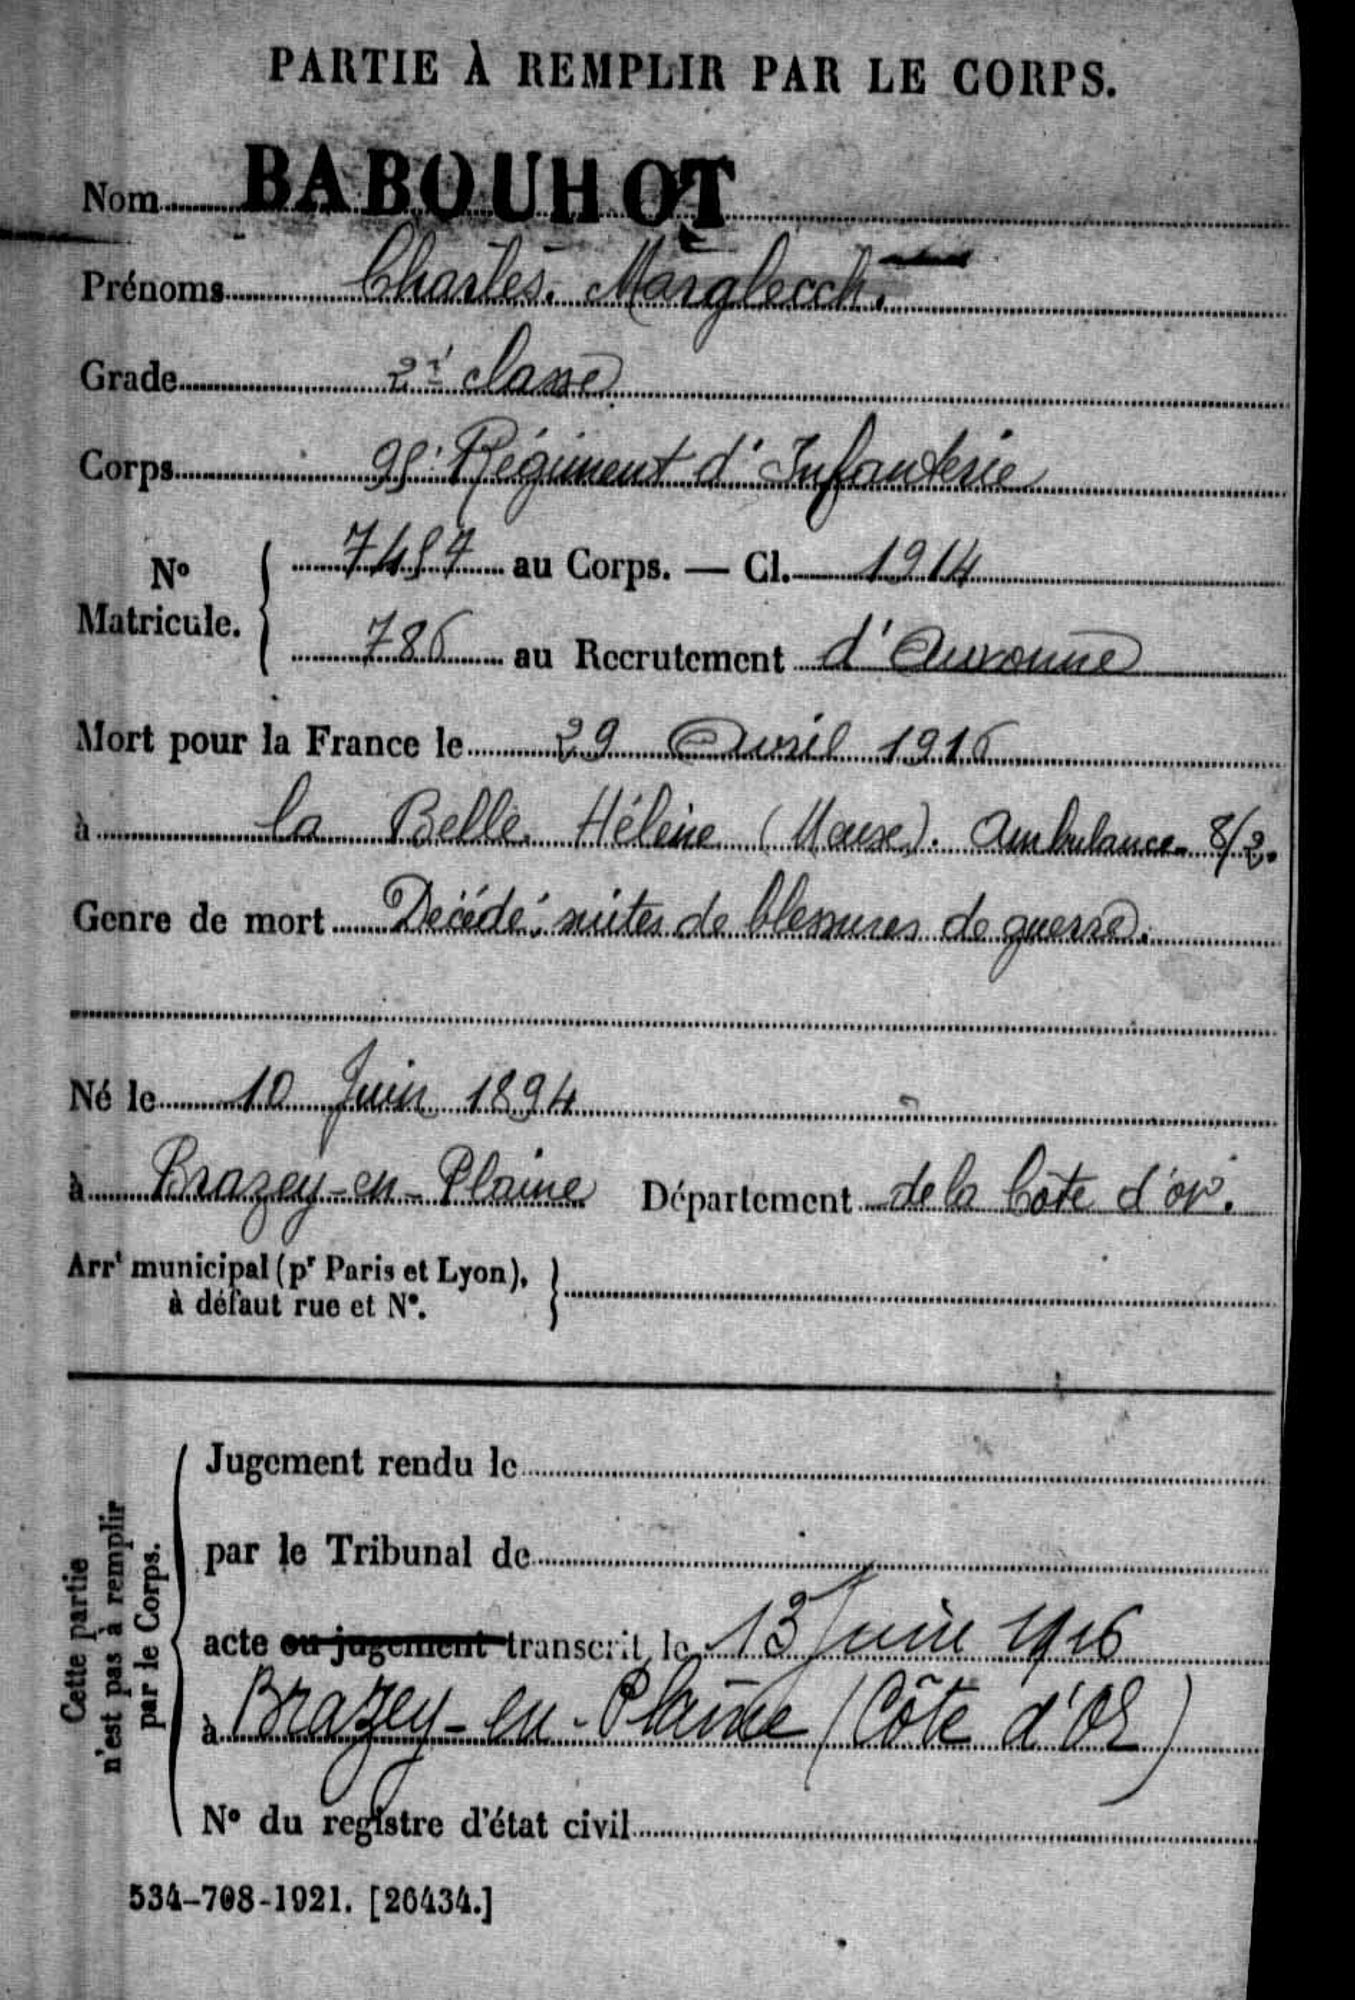 PARTIE À REMPLIR PAR LE CORPS.
Nom BABOUHOT
Prénoms Charles. Marglecch.
Grade 2è classe
Corps Régiment d'Infanterie
N° Matricule. 7487 au Corps. — Cl. 1914
786 au Recrutement d'Auxonne
Mort pour la France le 29 Avril 1916
à la Belle Hélène (Meuse). Ambulance 8/2.
Genre de mort Décédé, suites de blessures de guerre.
Né le 10 Juin 1894
à Brazey-en-Plaine Département de la Côte d'or.
Arrt municipal (pr Paris et Lyon),
à défaut rue et N°.
Cette partie
n'est pas à remplir
par le Corps.
Jugement rendu le
par le Tribunal de
acte ou jugement transcrit le 13 Juin 1916
à Brazey-en-Plaine (Côte d'Or)
N° du registre d'état civil
534-708-1921. [26434.]